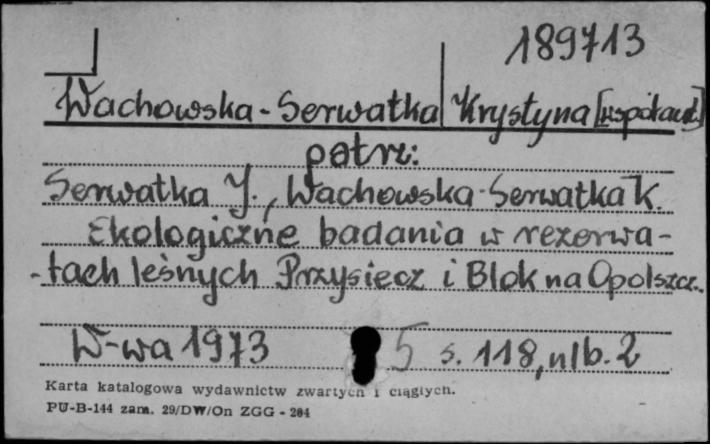 189713
Wachowska-Serwatka Krystyna [współaut.]
patrz:
Serwatka J., Wachowska-Serwatka K.
Ekologiczne badania w rezerwa-
-tach leśnych Przysiecz i Blok na Opolszcz.
W-wa 1973 5 s. 118, nlb. 2
Karta katalogowa wydawnictw zwartych i ciągłych.
PU-B-144 zam. 29/DW/On ZGG - 204